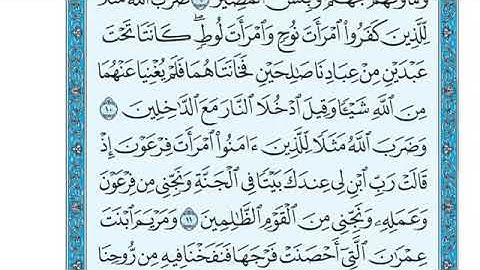 وَمَأْوَىٰهُمْ جَهَنَّمُ وَبِئْسَ ٱلْمَصِيرُ ۝٩ ضَرَبَ ٱللَّهُ مَثَلًا
لِّلَّذِينَ كَفَرُوا۟ ٱمْرَأَتَ نُوحٍ وَٱمْرَأَتَ لُوطٍ ۖ كَانَتَا تَحْتَ
عَبْدَيْنِ مِنْ عِبَادِنَا صَٰلِحَيْنِ فَخَانَتَاهُمَا فَلَمْ يُغْنِيَا عَنْهُمَا
مِنَ ٱللَّهِ شَيْـًٔا وَقِيلَ ٱدْخُلَا ٱلنَّارَ مَعَ ٱلدَّٰخِلِينَ ۝١٠
وَضَرَبَ ٱللَّهُ مَثَلًا لِّلَّذِينَ ءَامَنُوا۟ ٱمْرَأَتَ فِرْعَوْنَ إِذْ
قَالَتْ رَبِّ ٱبْنِ لِى عِندَكَ بَيْتًا فِى ٱلْجَنَّةِ وَنَجِّنِى مِن فِرْعَوْنَ
وَعَمَلِهِۦ وَنَجِّنِى مِنَ ٱلْقَوْمِ ٱلظَّٰلِمِينَ ۝١١ وَمَرْيَمَ ٱبْنَتَ
عِمْرَٰنَ ٱلَّتِىٓ أَحْصَنَتْ فَرْجَهَا فَنَفَخْنَا فِيهِ مِن رُّوحِنَا